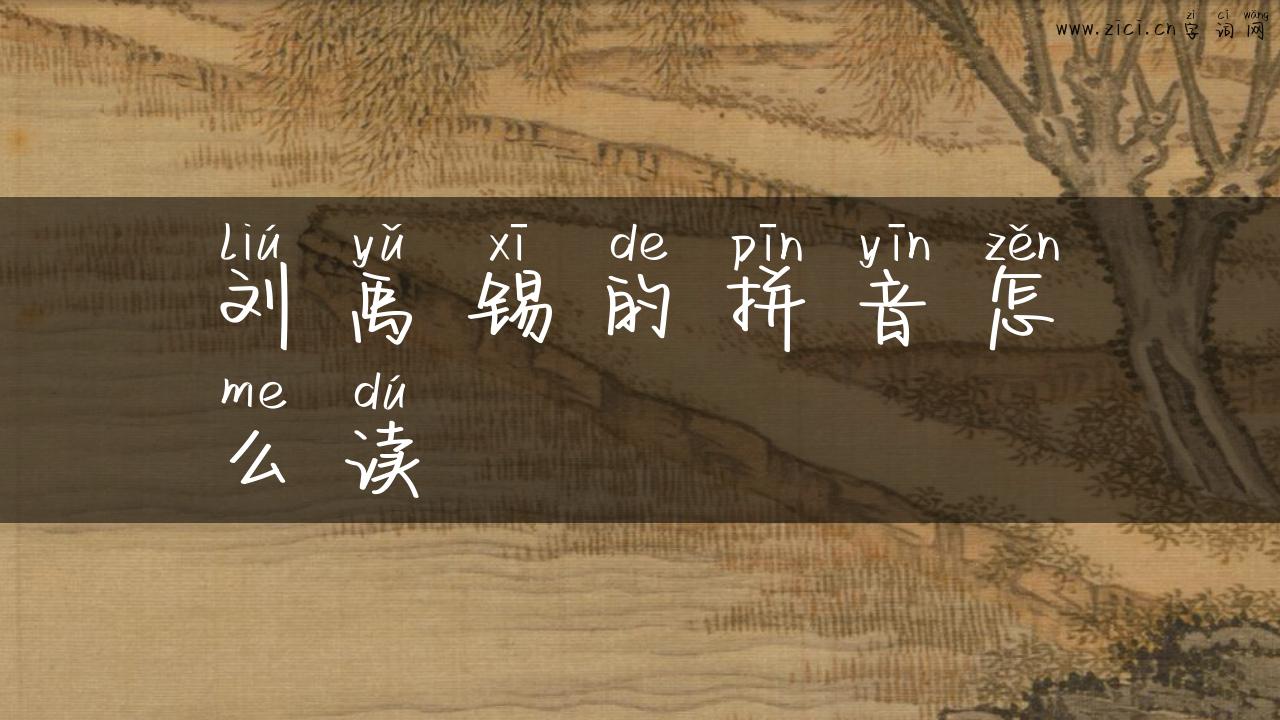 zì cí wǎng
www.zici.cn字词网
liú yǔ xī de pīn yīn zěn
刘禹锡的拼音怎
me dú
么读